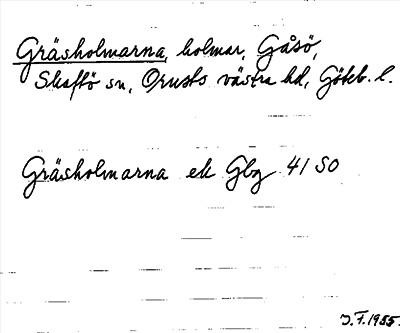 Gräsholmarna, holmar, Gåsö,
Skaftö sn, Orusts västra hd, Göteb. l.
Gräsholmarna ek Gbg 41 SO
J. F. 1955.